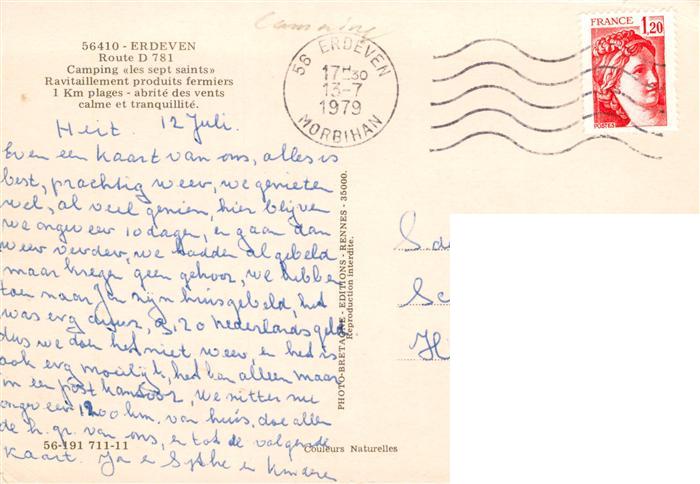 56410 - ERDEVEN
Route D 781
Camping «les sept saints»
Ravitaillement produits fermiers
1 Km plages - abrité des vents
calme et tranquillité.
56 ERDEVEN
17H30
13-7
1979
MORBIHAN
FRANCE 1,20
POSTES
12 Juli.
Even een kaart van ons, alles is
best, prachtig weer, we genieten
wel, al veel genien, hier blijven
we ongeveer 10 dagen, en gaan dan
weer verder, we hadden al gebeld
maar kregen geen gehoor, we hebben
toen naar Jan zijn huis gebeld, het
was erg duur, 8,20 nederlands geld
dus we doen het niet weer, en het is
ook erg moeilijk, het kan alleen maar
in een postkantoor, we zitten nu
ongeveer 1200 km. van huis, doe allen
de h. gr. van ons, en tot de volgende
kaart. Ja en en kinderen
56-191 711-11
Couleurs Naturelles
PHOTO-BRETAGNE - EDITIONS - RENNES - 35000.
Reproduction interdite.